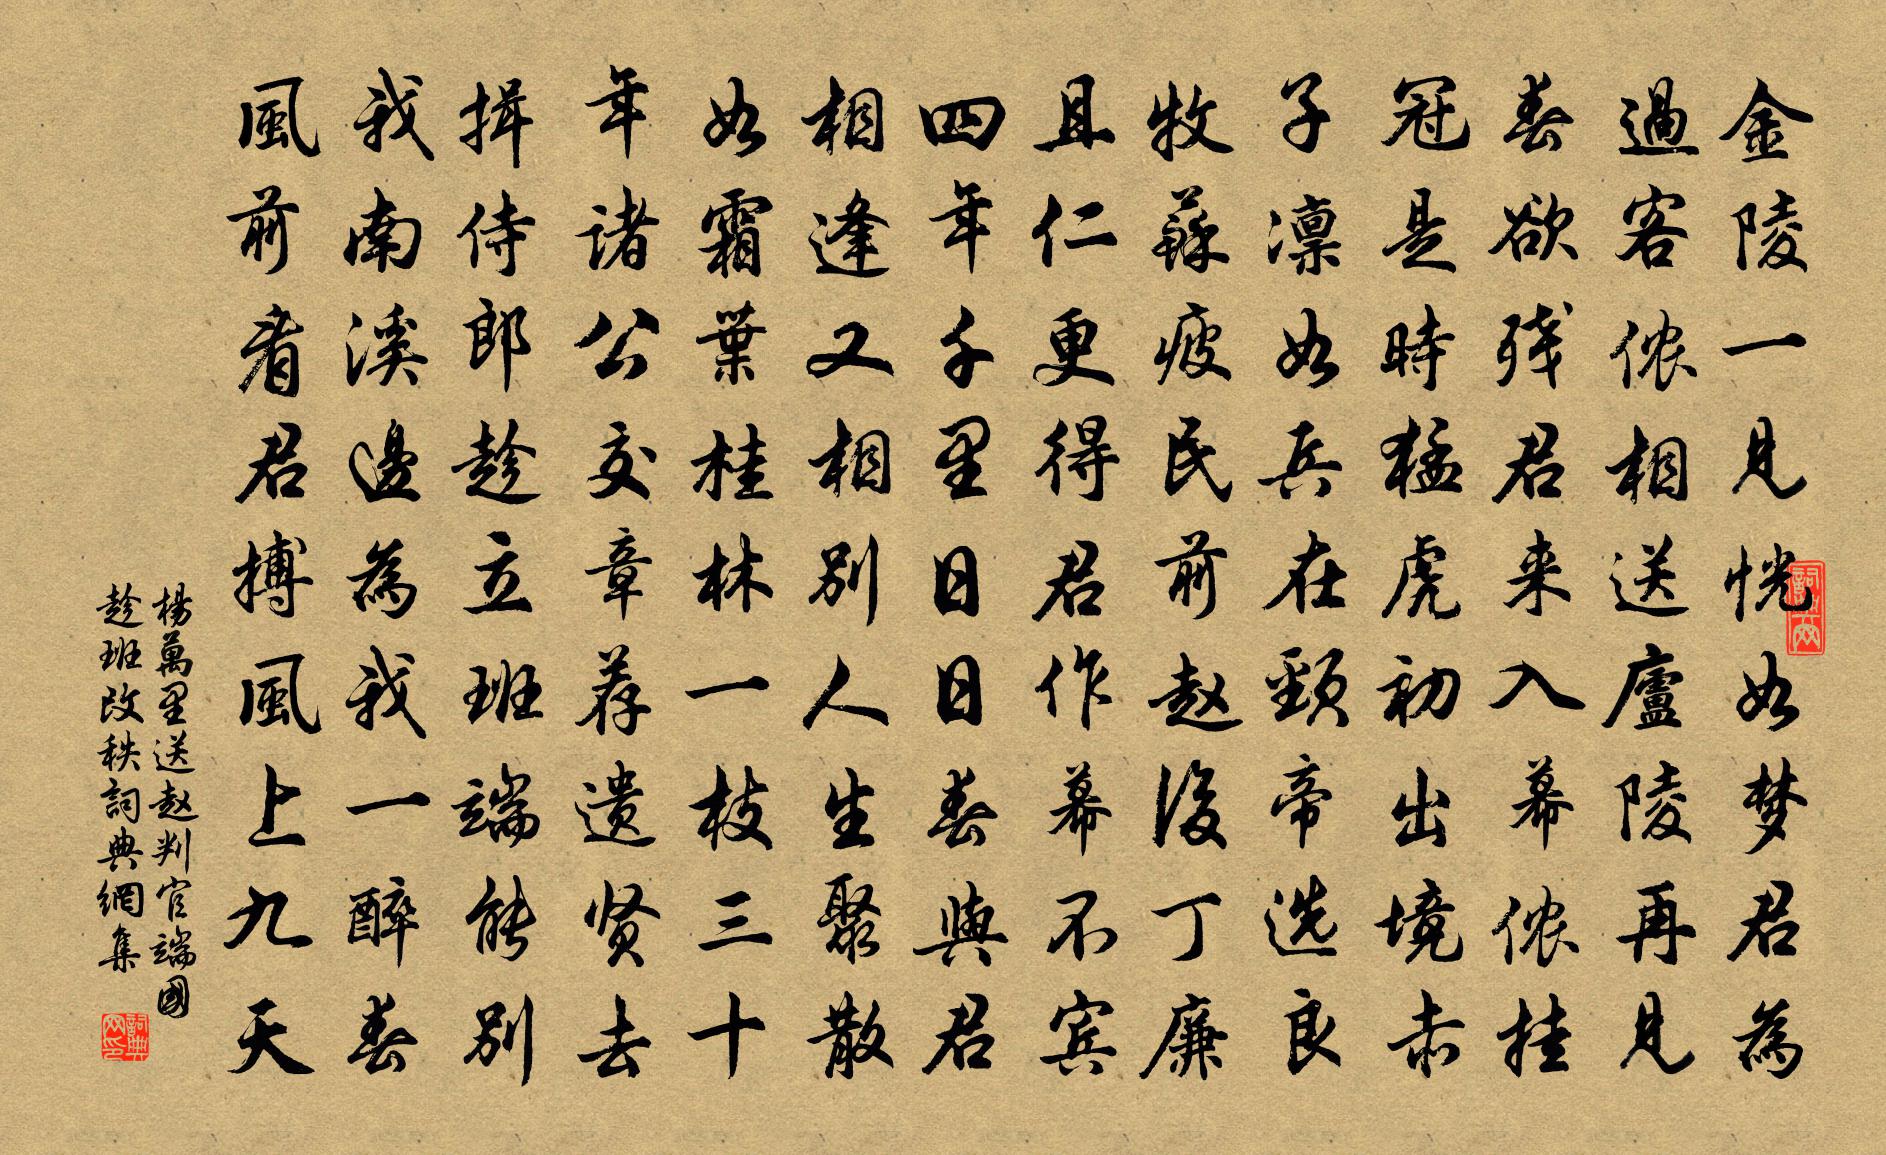 金陵一見恍如梦君為
過客侬相送廬陵再見
春欲残君来入幕侬挂
冠是時猛虎初出境赤
子凛如兵在頸帝选良
牧蘇疲民前赵後丁廉
且仁更得君作幕不宾
四年千里日日春與君
相逢又相别人生聚散
如霜葉桂林一枝三十
年诸公交章荐遗贤去
揖侍郎趁立班端能别
我南溪邊為我一醉春
風前看君搏風上九天
楊萬里送赵判官端國
趁班改秩詞典網集